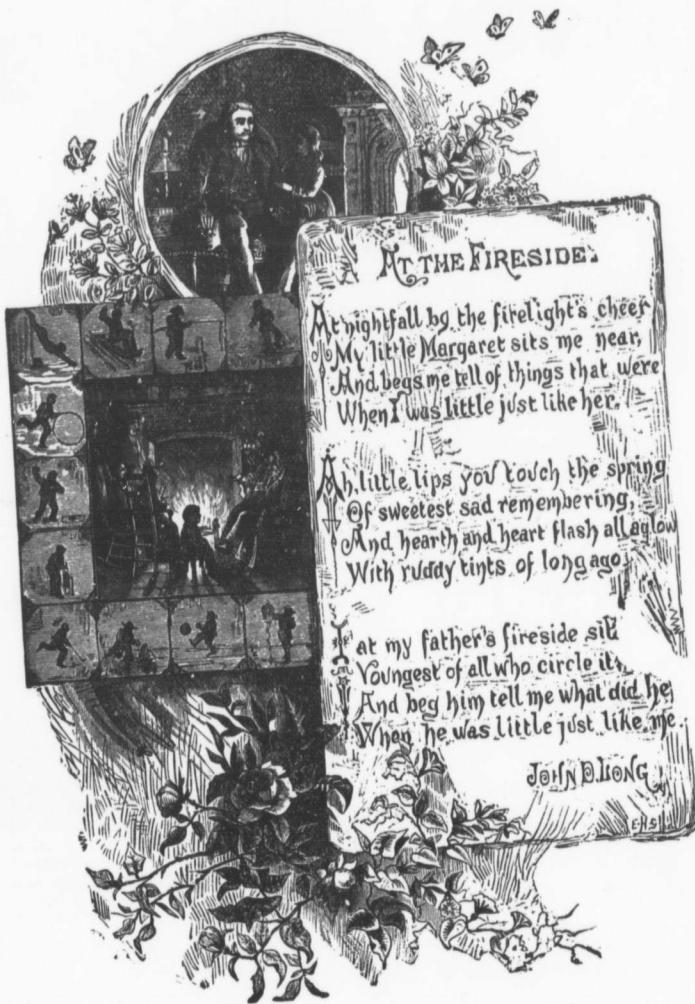 AT THE FIRESIDE.
At nightfall by the firelight's cheer
My little Margaret sits me near,
And begs me tell of things that were
When I was little just like her.
Ah, little lips you touch the spring
Of sweetest sad remembering,
And hearth and heart flash all aglow
With ruddy tints of long ago.
I at my father's fireside sit
Youngest of all who circle it,
And beg him tell me what did he
When he was little just like me.
JOHN D. LONG
E.H.S.